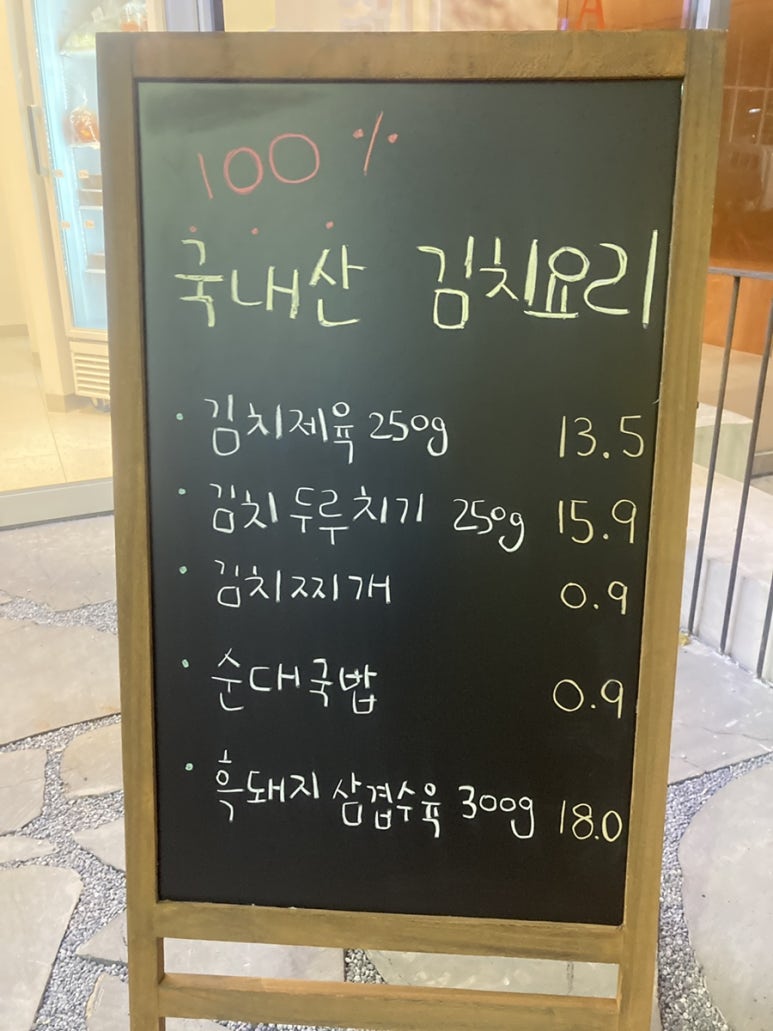 A
100 %
국내산 김치요리
· 김치제육 250g 13.5
· 김치두루치기 250g 15.9
· 김치찌개 0.9
· 순대국밥 0.9
· 흑돼지 삼겹수육 300g 18.0